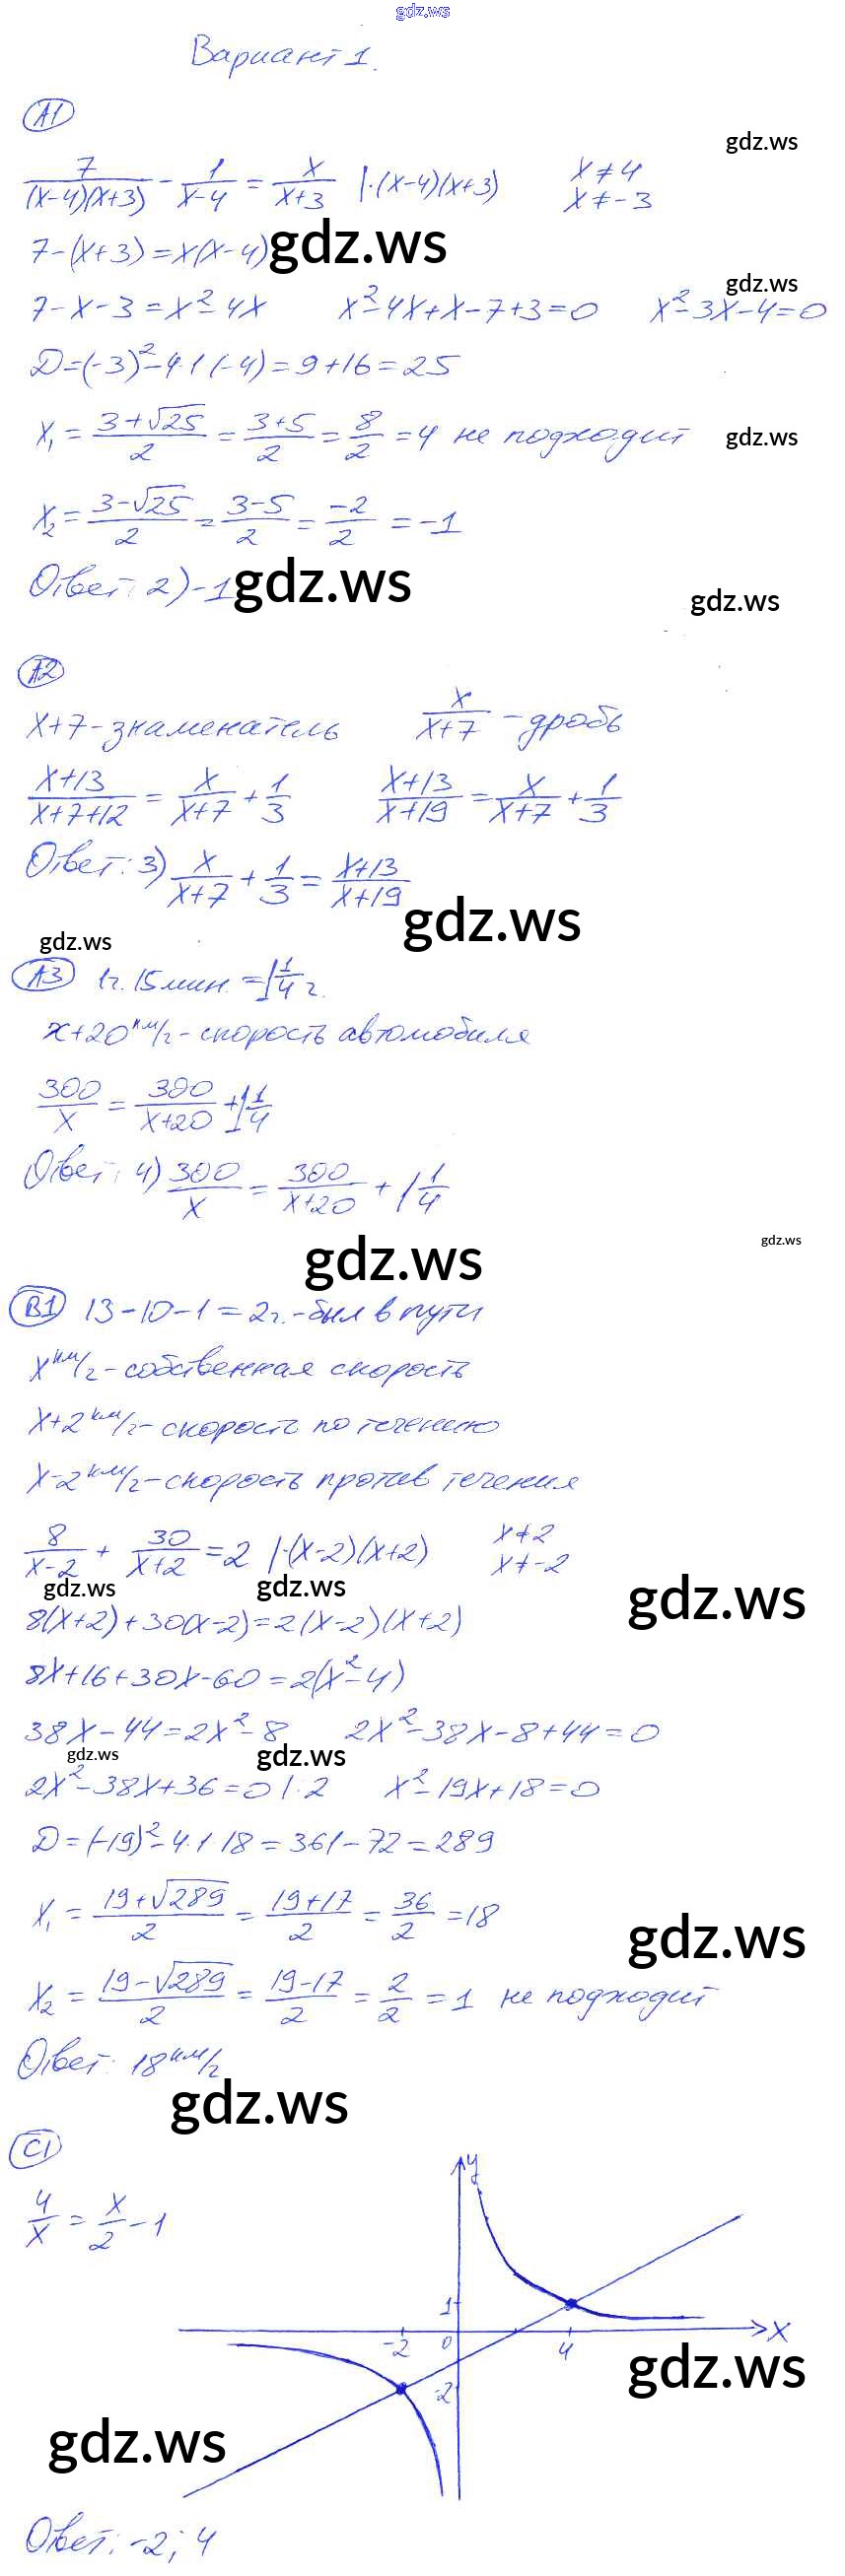 gdz.ws
Вариант 1.
А1
gdz.ws
7/((x-4)(x+3)) - 1/(x-4) = x/(x+3) |·(x-4)(x+3) x≠4
x≠-3
7-(x+3)=x(x-4) gdz.ws
gdz.ws
7-x-3=x²-4x x²-4x+x-7+3=0 x²-3x-4=0
D=(-3)²-4·1(-4)=9+16=25
x₁ = (3+√25)/2 = (3+5)/2 = 8/2 = 4 не подходит gdz.ws
x₂ = (3-√25)/2 = (3-5)/2 = -2/2 = -1
Ответ: 2) -1 gdz.ws
gdz.ws
А2
x+7-знаменатель x/(x+7) - дробь
(x+13)/(x+7+12) = x/(x+7) + 1/3 (x+13)/(x+19) = x/(x+7) + 1/3
Ответ: 3) x/(x+7) + 1/3 = (x+13)/(x+19)
gdz.ws
gdz.ws
А3 1ч. 15 мин. = 1 1/4 ч.
x+20 км/ч - скорость автомобиля
300/x = 300/(x+20) + 1 1/4
Ответ: 4) 300/x = 300/(x+20) + 1 1/4
gdz.ws
gdz.ws
В1 13-10-1=2ч. - был в пути
x км/ч - собственная скорость
x+2 км/ч - скорость по течению
x-2 км/ч - скорость против течения
8/(x-2) + 30/(x+2) = 2 |·(x-2)(x+2) x≠2
x≠-2
gdz.ws
gdz.ws
gdz.ws
8(x+2)+30(x-2)=2(x-2)(x+2)
8x+16+30x-60=2(x²-4)
38x-44=2x²-8 2x²-38x-8+44=0
gdz.ws
gdz.ws
2x²-38x+36=0 |:2 x²-19x+18=0
D=(-19)²-4·1·18=361-72=289
x₁ = (19+√289)/2 = (19+17)/2 = 36/2 = 18
gdz.ws
x₂ = (19-√289)/2 = (19-17)/2 = 2/2 = 1 не подходит
Ответ: 18 км/ч
gdz.ws
С1
4/x = x/2 - 1
y
1
-2 0 4 x
gdz.ws
-2
gdz.ws
Ответ: -2; 4